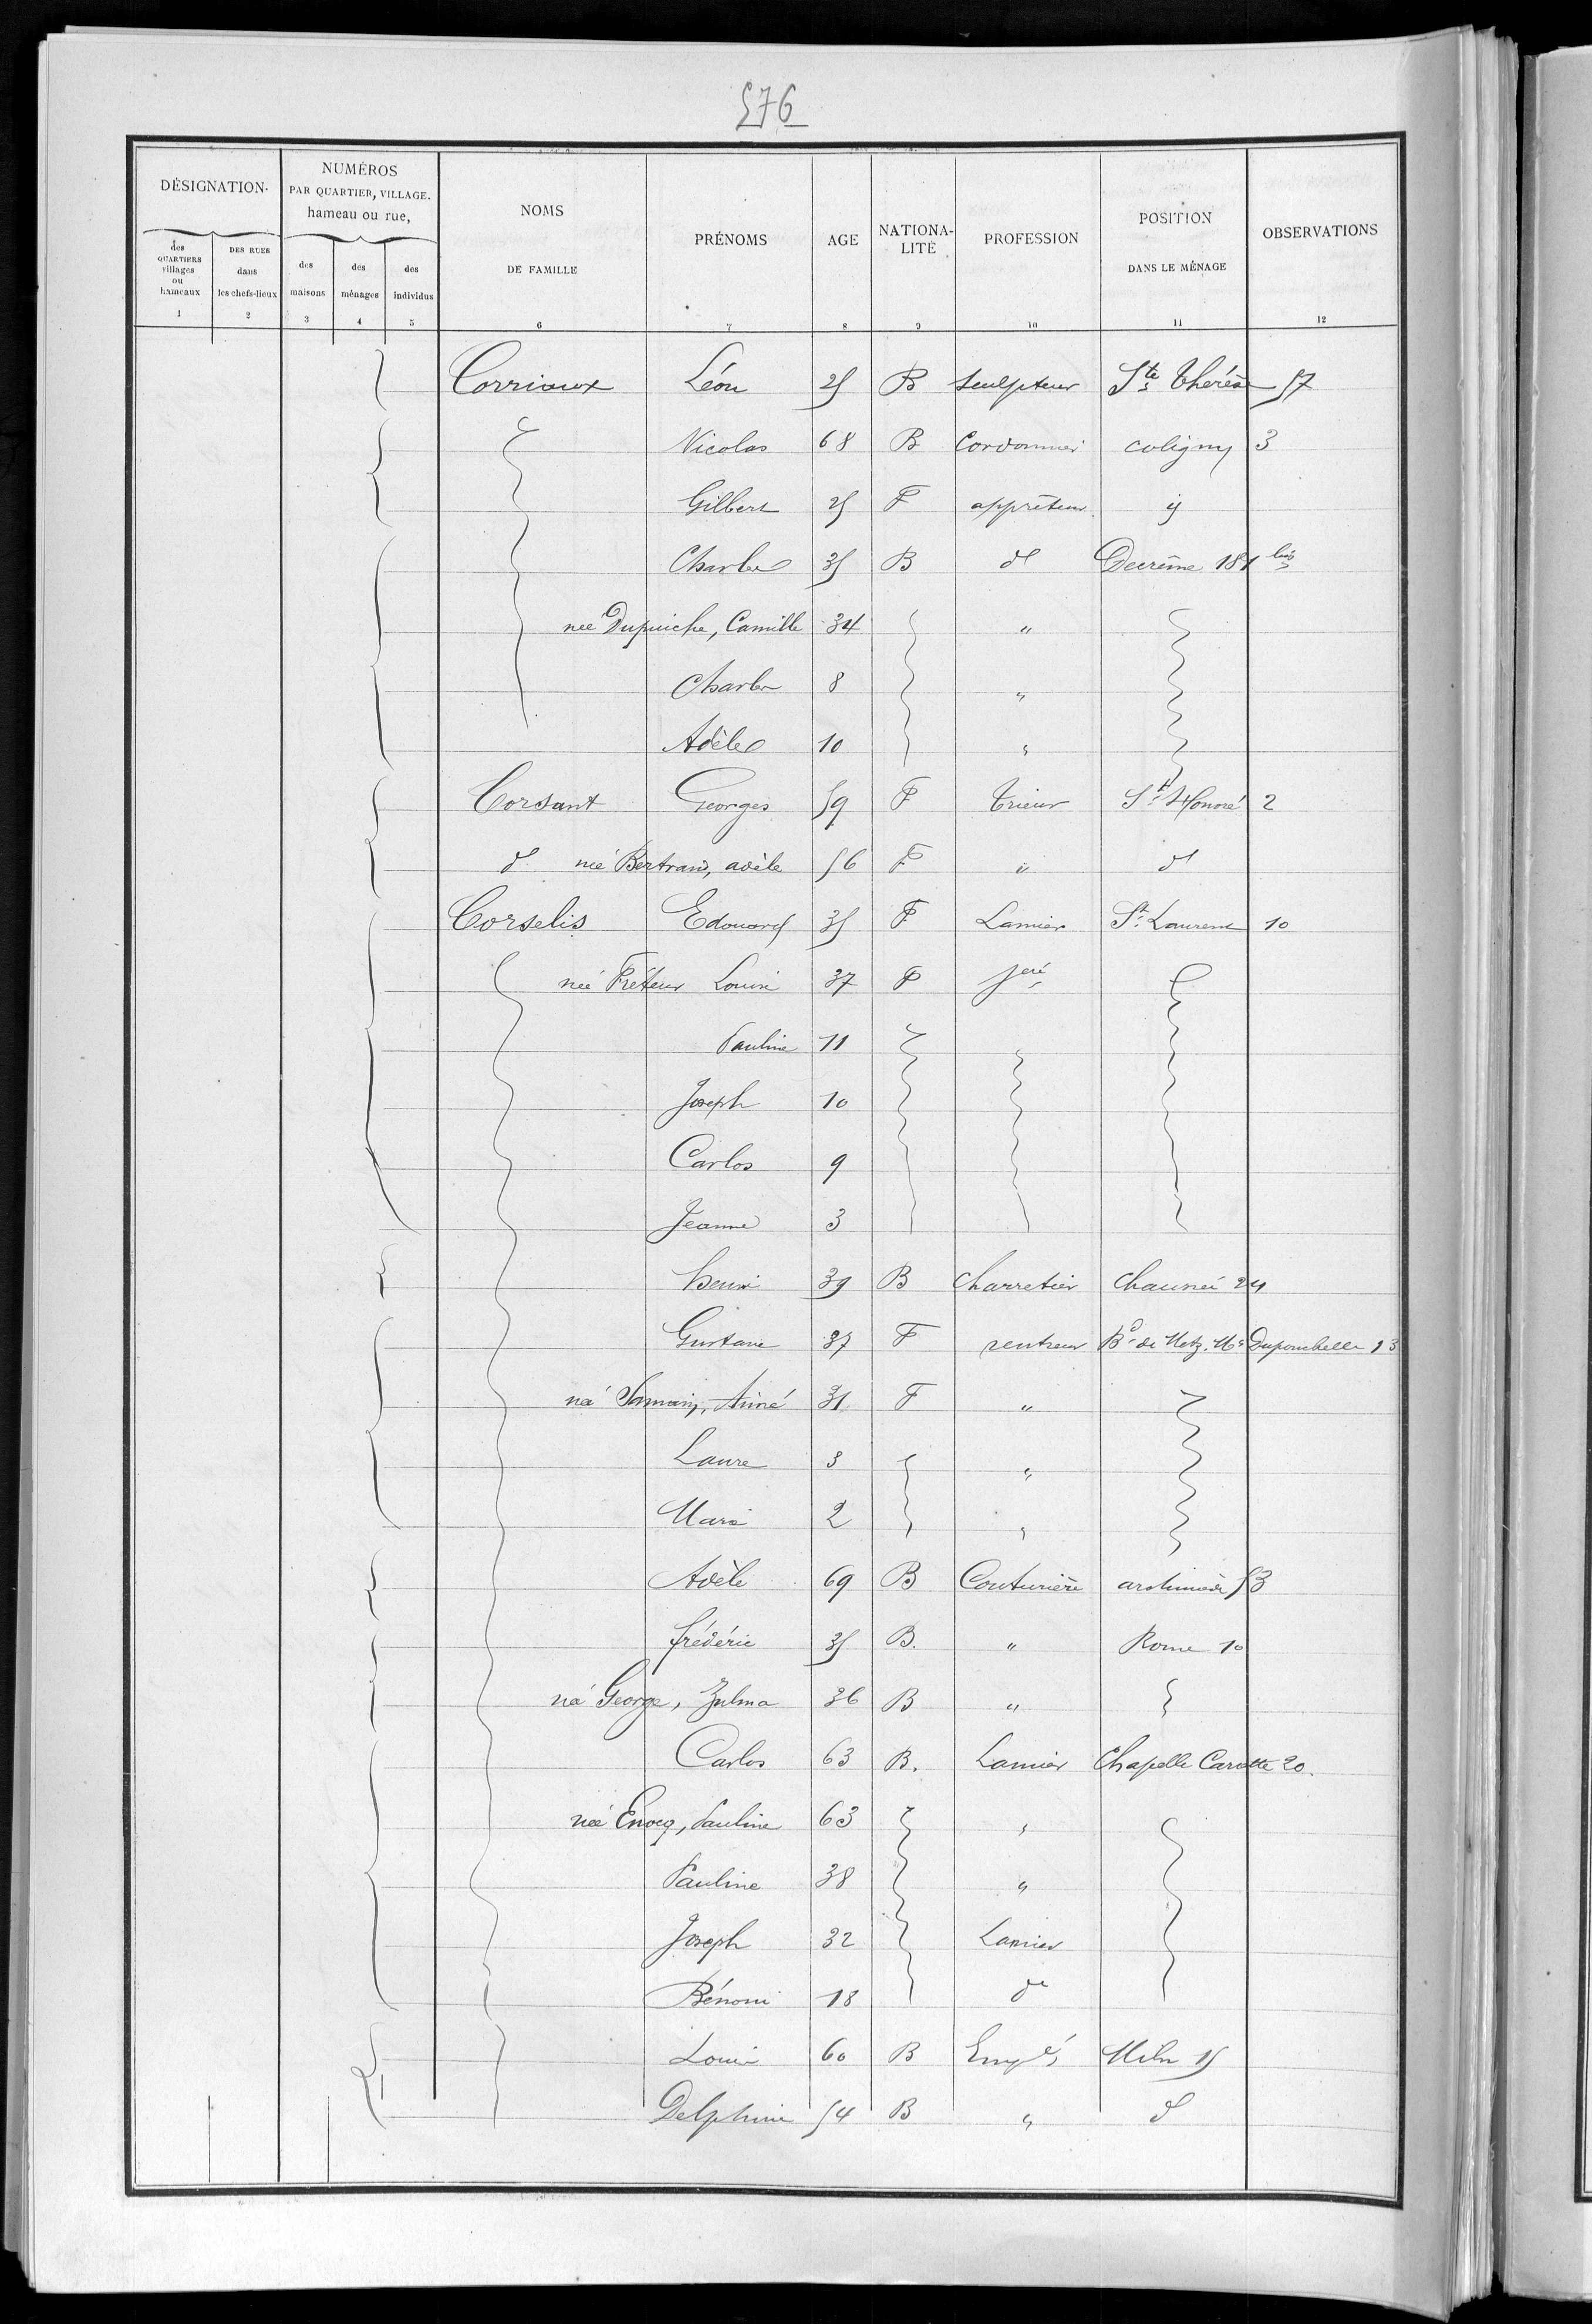 576
DÉSIGNATION
NUMÉROS
PAR QUARTIER, VILLAGE.
hameau ou rue,
NOMS
DE FAMILLE
PRÉNOMS
AGE
NATIONA-
LITÉ
PROFESSION
POSITION
DANS LE MÉNAGE
OBSERVATIONS
des
QUARTIERS
villages
ou
hameaux
DES RUES
dans
les chefs-lieux
des
maisons
des
ménages
des
individus
1 2 3 4 5 6 7 8 9 10 11 12
Corriaux Léon 25 B sculpteur Ste Thérèse 57
Nicolas 68 B Cordonnier coligny 3
Gilbert 25 F apprêteur
Charles 35 B d° Decrême 181 bis
née Dupuiche, Camille 34 "
Charles 8 "
Adèle 10 "
Corsant Georges 59 F Trieur St Honoré 2
d° née Bertrand, adèle 56 F " d°
Corselis Edouard 35 F Lamier St Laurent 10
née Fréteur Louise 37 F
Pauline 11
Joseph 10
Carlos 9
Jeanne 3
henri 39 B charretier Chaussée 24
Gustave 37 F rentreur Bd de Metz. Mn Duponchelle 13
née Samain, Aimé 31 F "
Laure 3 "
Marie 2 "
Adèle 69 B Couturière archimède 53
frédéric 35 B. " Rome 10
née George, Zulma 36 B "
Carlos 63 B. Lamier Chapelle Carette 20.
née Enocq, Pauline 63 "
Pauline 38 "
Joseph 32 Lamier
Bénoni 18 d°
Louis 60 B Empé 15
Delphine 54 B " d°